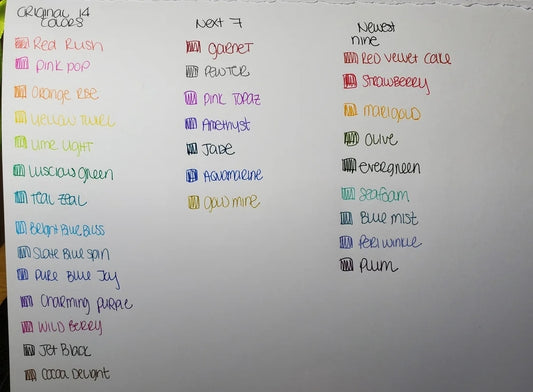 ORIGINAL 14
COLORS
Red Rush
Pink pop
Orange Rise
Yellow Twirl
Lime Light
Luscious green
Teal Zeal
Bright Blue Bliss
Slate Blue Spin
Pure Blue Joy
Charming purple
Wild Berry
Jet Black
Cocoa Delight
Next 7
garnet
Pewter
Pink Topaz
Amethyst
Jade
Aquamarine
gold mine
Newest
nine
Red velvet cake
Strawberry
Marigold
Olive
Evergreen
Seafoam
Blue mist
Periwinkle
Plum